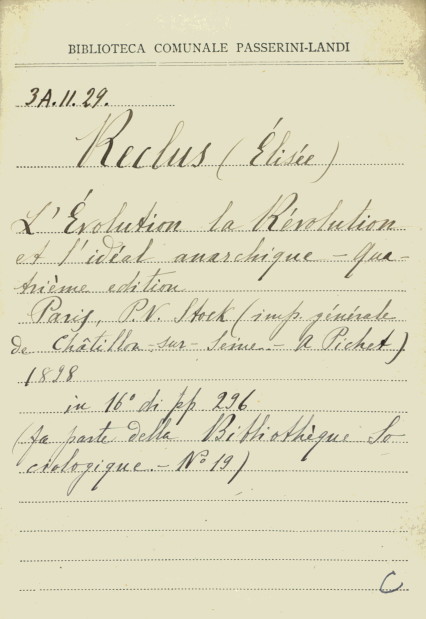 BIBLIOTECA COMUNALE PASSERINI-LANDI
3A.11.29.
Reclus (Élisée)
L'Évolution la Révolution
et l'idéal anarchique - Qua-
trième edition
Paris, P.V. Stock (imp. générale
de Châtillon-sur-Seine - A Pichet)
1898
in 16° di pp 296
(fa parte della Bibliothèque So-
ciologique - N° 19)
C